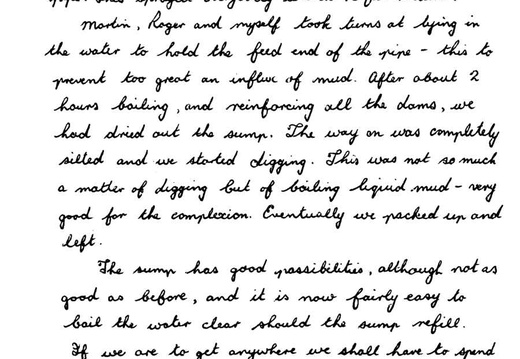 Martin, Roger and myself took turns at lying in
the water to hold the feed end of the pipe - this to
prevent too great an influx of mud. After about 2
hours bailing, and reinforcing all the dams, we
had dried out the sump. The way on was completely
silted and we started digging. This was not so much
a matter of digging but of bailing liquid mud - very
good for the complexion. Eventually we packed up and
left.
The sump has good possibilities, although not as
good as before, and it is now fairly easy to
bail the water clear should the sump refill.
If we are to get anywhere we shall have to spend